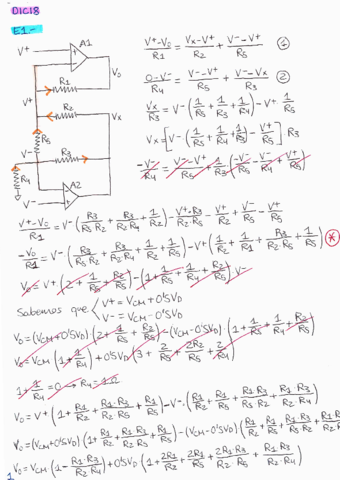 DIC18
E1-
V+
A1
V0
R1
V+
R2
Vx
R5
V-
R3
R4
V-
A2
(V+-V0)/R1 = (Vx-V+)/R2 + (V--V+)/R5 ①
(0-V-)/R4 = (V--V+)/R5 + (V--Vx)/R3 ②
Vx/R3 = V-(1/R5 + 1/R3 + 1/R4) - V+ 1/R5
Vx = [V-(1/R5 + 1/R4 + 1/R3) - V+/R5] R3
(V+-V0)/R1 = V-(R3/(R5·R2) + R3/(R2·R4) + 1/R2) - V+·R3/(R2·R5) - V+/R2 + V-/R5 - V+/R5
-V0/R1 = V-(R3/(R5·R2) + R3/(R2·R4) + 1/R2 + 1/R5) - V+(1/R2 + 1/R1 + R3/(R2·R5) + 1/R5) *
V0 = V+(2 + 1/R5 + R2/R5) - (1 + 1/R5 + 1/R4 + R2/R5)·V-
Sabemos que { V+ = VCM + 0'5VD
V- = VCM - 0'5VD
V0 = (VCM+0'5VD)·(2 + 1/R5 + R2/R5) - (VCM-0'5VD)·(1 + 1/R5 + 1/R4 + R2/R5)
V0 = VCM(1 + 1/R4) + 0'5VD(3 + 2/R5 + 2R2/R5 + 2/R4)
1 + 1/R4 = 0 → R4 = 1Ω
V0 = V+(1 + R1/R2 + R1·R3/(R2·R5) + R1/R5) - V-·(R1/R2 + R1/R5 + R1·R3/(R5·R2) + R1·R3/(R2·R4))
V0 = (VCM+0'5VD)(1 + R1/R2 + R1·R3/(R2·R5) + R1/R5) - (VCM-0'5VD)(R1/R2 + R1/R5 + R1·R3/(R5·R2) + R1·R3
V0 = VCM(1 - R1·R3/(R2·R4)) + 0'5VD(1 + 2R1/R2 + 2R1/R5 + 2R1·R3/(R2·R5) + R1·R3/(R2·R4))
1